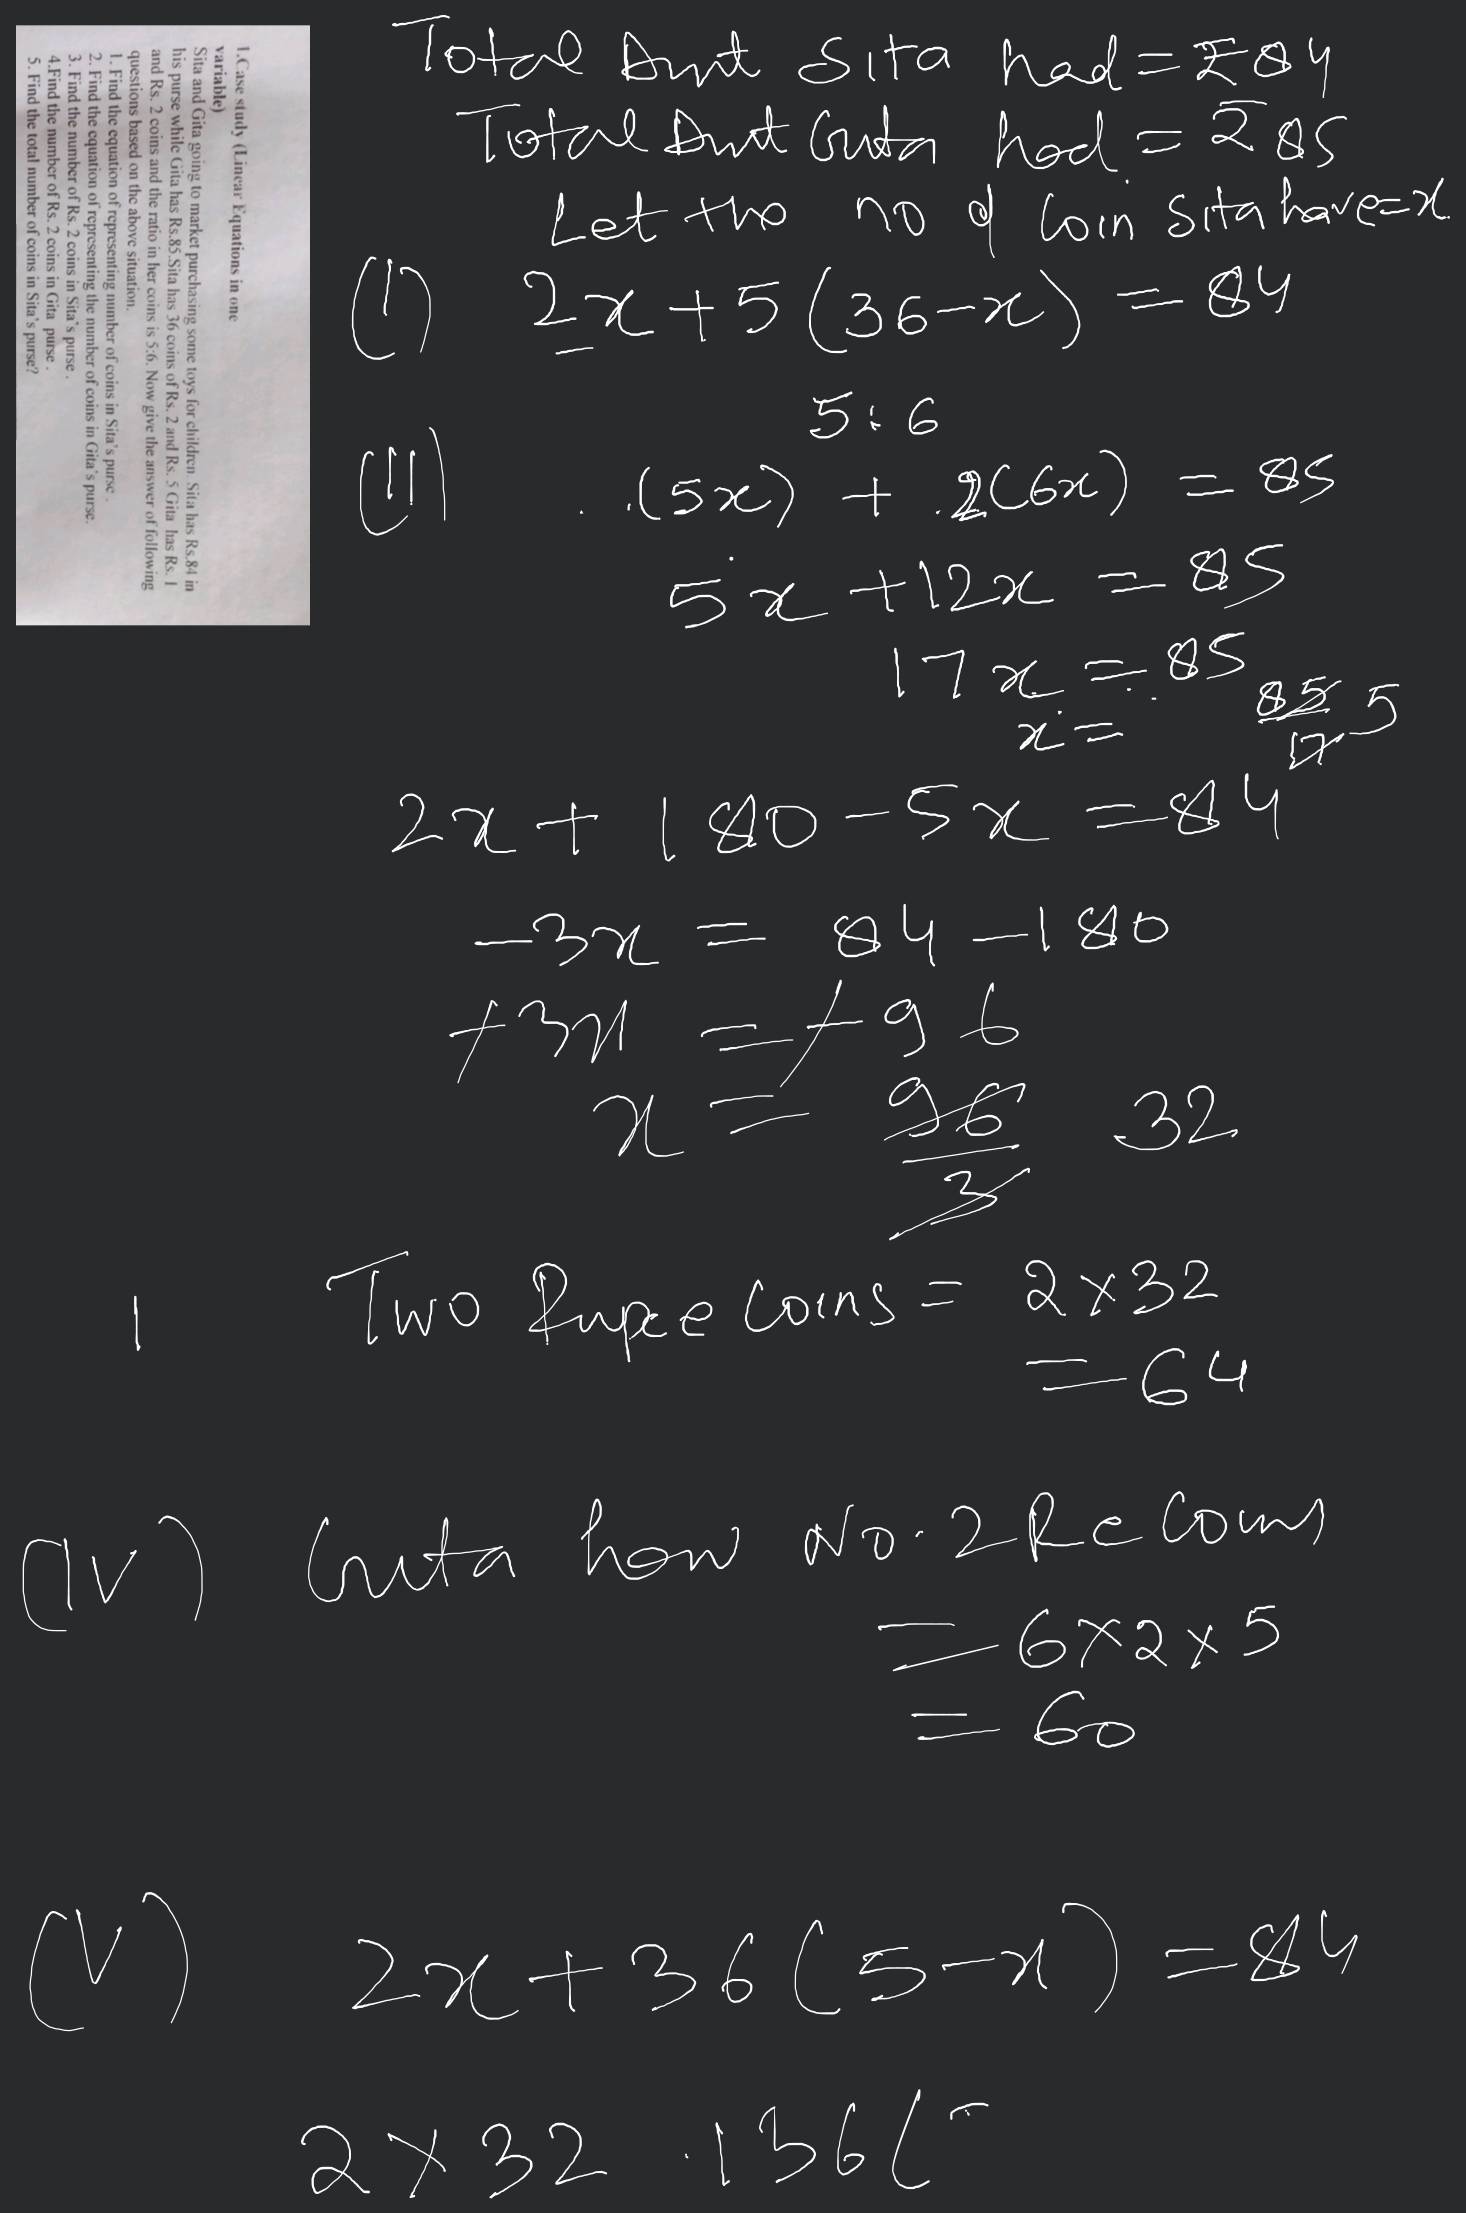 1.Case study (Linear Equations in one
variable)
Sita and Gita going to market purchasing some toys for children. Sita has Rs.84 in
his purse while Gita has Rs.85.Sita has 36 coins of Rs. 2 and Rs. 5 Gita has Rs. 1
and Rs. 2 coins and the ratio in her coins is 5:6. Now give the answer of following
questions based on the above situation.
1. Find the equation of representing number of coins in Sita's purse .
2. Find the equation of representing the number of coins in Gita's purse.
3. Find the number of Rs. 2 coins in Sita's purse .
4.Find the number of Rs. 2 coins in Gita purse .
5. Find the total number of coins in Sita's purse?
Total Amt Sita had = ₹84
Total Amt Guta had = ₹85
Let the no of Coin Sita have=x
(I) 2x+5(36-x) = 84
5:6
(II) (5x) + 2(6x) = 85
5x +12x = 85
17x = 85
x = 85/17 5
2x + 180 - 5x = 84
-3x = 84 - 180
+3x = +96
x = 96/3 32
1 Two Rupee Coins = 2×32
= 64
(IV) Guta how No. 2 Re Coins
= 6×2×5
= 60
(V) 2x+36(5-x) = 84
2×32 .136(-